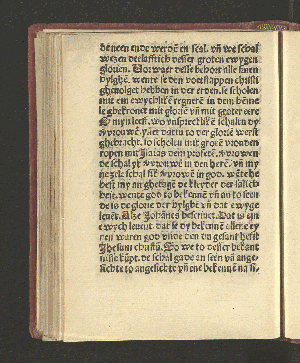 de neen ende werdē en scal. vn̄ we schal
wezen deelafftich desser groten ewygen
glorien. Vorwaer desse behort alle sinen
hylghē. wente se den votstappen christi
ghevolget hebben in der erden. se scholen
mit em ewychlikē regnerē in dem hēme
le ghekronet mit glorie vn̄ mit groter ere
O myn leef. wo vnsprechlikē schaltu dy
vrouwē. ysset dattu to der glorie werst
ghebracht. so scholtu mit grotē vrouden
ropen mit Isaias dem profetē. vrowen
de schal yk vrowē in den herē. vn̄ my
ne zele schal sik vrowen in god. wēte he
heft my an ghetagē de kleyder der salich
heit. wente god to bekennē vn̄ en to scou
de is de glorie der hylghē vn̄ dat ewyge
leuēt. Alze Johānes bescriuet. Dat is ein
ewych leuent. dat se dy bekennē alleē ey
nen waren god vn̄ den du gesant hefst
Jhesum christū. Wo we to desser bekant
nisse kūpt. de schal gade an seen vā ange
sichte to angesichte vn̄ ene bekennē na si